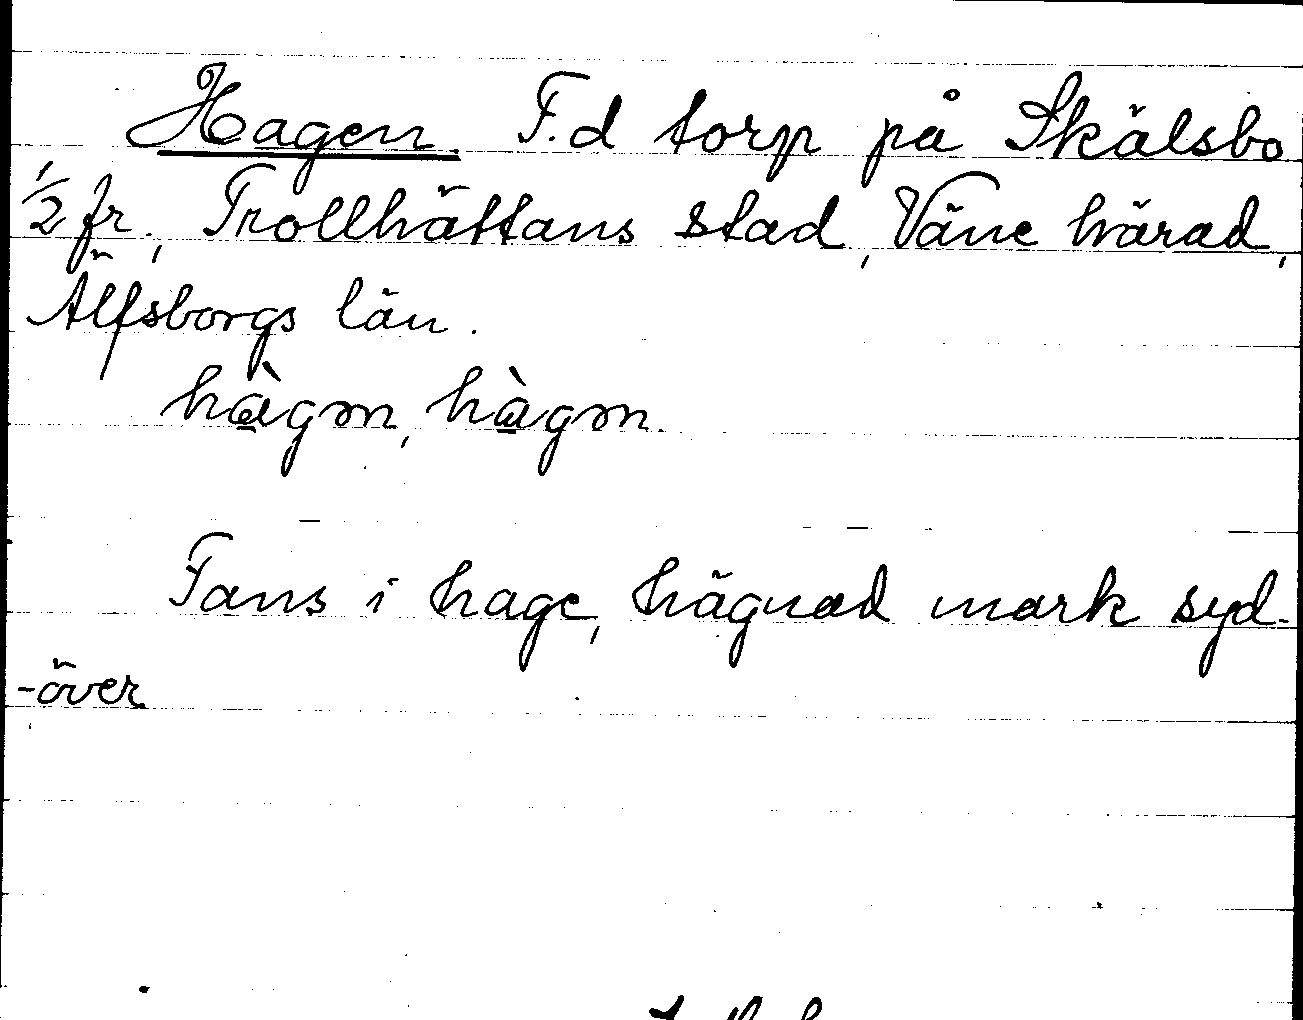 Hagen. F.d torp på Skälsbo
1/2 fr., Trollhättans stad, Väne härad,
Älfsborgs län.
hàgɷn, hàgɷn.
Fans i hage, hägnad mark syd-
-över